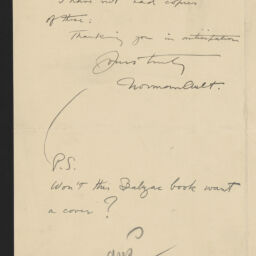 I have not had copies
of these:
Thanking you in anticipation
Yours truly
Norman Ault.
P.S.
Won't this Balzac book want
a cover?